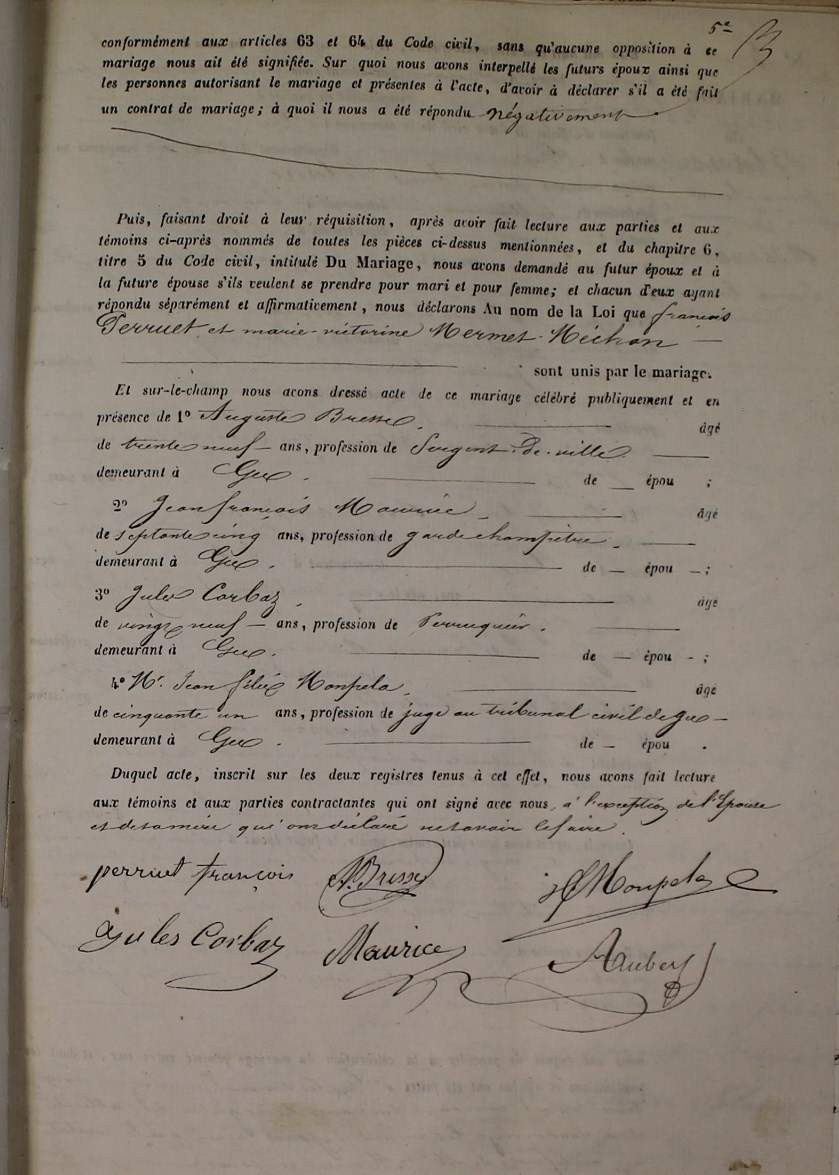 5e
conformément aux articles 63 et 64 du Code civil, sans qu'aucune opposition à ce
mariage nous ait été signifiée. Sur quoi nous avons interpellé les futurs époux ainsi que
les personnes autorisant le mariage et présentes à l'acte, d'avoir à déclarer s'il a été fait
un contrat de mariage; à quoi il nous a été répondu négativement
Puis, faisant droit à leur réquisition, après avoir fait lecture aux parties et aux
témoins ci-après nommés de toutes les pièces ci-dessus mentionnées, et du chapitre 6,
titre 5 du Code civil, intitulé Du Mariage, nous avons demandé au futur époux et à
la future épouse s'ils veulent se prendre pour mari et pour femme; et chacun d'eux ayant
répondu séparément et affirmativement, nous déclarons Au nom de la Loi que françois
Perruet et marie-victorine Mermet-Méchon —
sont unis par le mariage.
Et sur-le-champ nous avons dressé acte de ce mariage célébré publiquement et en
présence de 1° Auguste Bresse. âgé
de trente neuf — ans, profession de Sergent-de-ville
demeurant à Gex. de — épou ;
2° Jean françois Maurice âgé
de septante cinq ans, profession de garde champêtre.
demeurant à Gex. de — épou - ;
3° Jules Corbaz. âgé
de vingt neuf — ans, profession de Perruquier.
demeurant à Gex. de — épou - ;
4° Mr. Jean félix Monpela. âgé
de cinquante un ans, profession de juge au tribunal civil de Gex —
demeurant à Gex. de — épou .
Duquel acte, inscrit sur les deux registres tenus à cet effet, nous avons fait lecture
aux témoins et aux parties contractantes qui ont signé avec nous, à l'exception de l'Epouse
et de sa mère qui ont déclaré ne savoir le faire.
perruet françois A. Bresse Monpela
Jules Corbaz Maurice Aubert